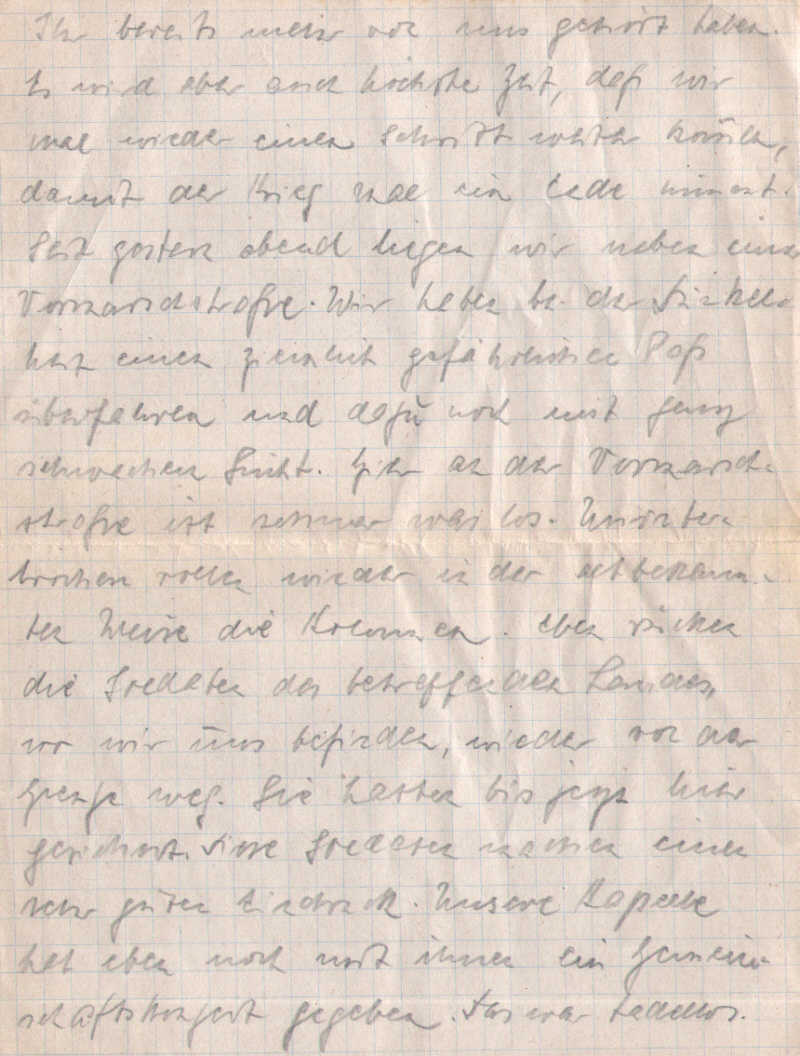 Ihr bereits mehr von uns gehört haben.
Es wird aber auch höchste Zeit, daß wir
mal wieder einen Schritt weiter kommen,
damit der Krieg mal ein Ende nimmt.
Seit gestern abend liegen wir neben einer
Vormarschstraße. Wir haben bei der Dunkel-
heit einen ziemlich gefährlichen Paß
überfahren und dazu noch mit ganz
schwachem Licht. Hier an der Vormarsch-
straße ist immer was los. Ununter-
brochen rollen wieder in der altbekann-
ten Weise die Kolonnen. Eben rücken
die Soldaten des betreffenden Landes,
wo wir uns befinden, wieder von der
Grenze weg. Sie hatten bis jetzt hier
gesichert. Diese Soldaten machen einen
sehr guten Eindruck. Unsere Kapelle
hat eben noch mit ihnen ein Gemein-
schaftskonzert gegeben. Das war tadellos.